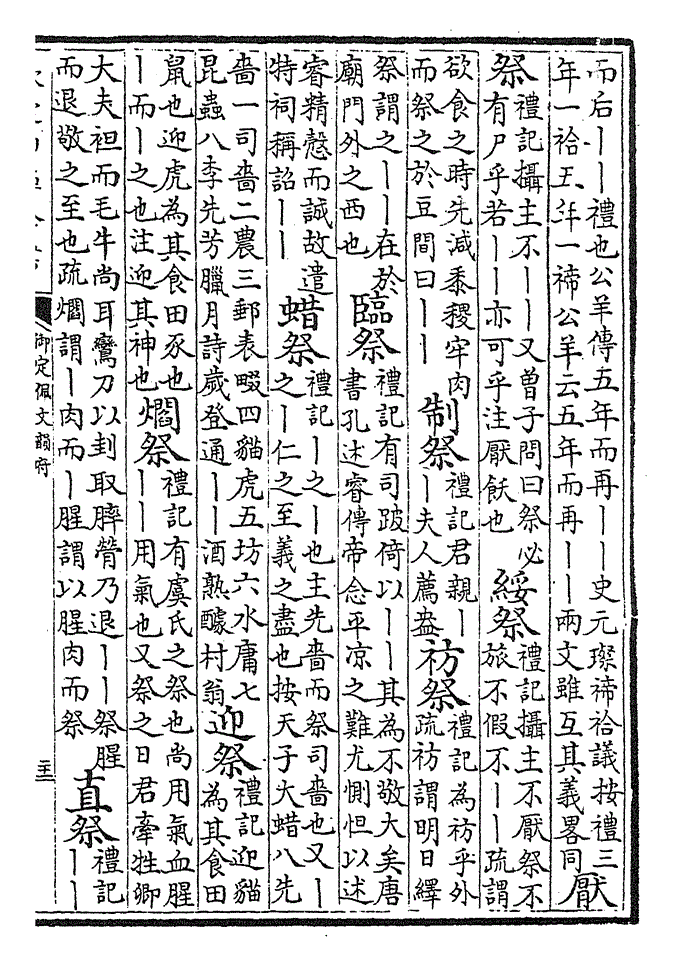 而后丨丨禮也公羊傳五年而再丨丨史元璨禘祫議按禮三
年一祫五年一禘公羊云五年而再丨丨兩文雖互其義畧同
厭
祭
禮記攝主不丨丨又曾子問曰祭必
有尸乎若丨丨亦可乎注厭飫也
綏祭
禮記攝主不厭祭不
旅不假不丨丨疏謂
欲食之時先減黍稷牢肉
而祭之於豆間曰丨丨
制祭
禮記君親丨
丨夫人薦盎
祊祭
禮記為祊乎外
疏祊謂明日繹
祭謂之丨丨在於
廟門外之西也
臨祭
禮記有司跛倚以丨丨其為不敬大矣唐
書孔述睿傳帝念平凉之難尤惻怛以述
睿精愨而誠故遣
特祠稱詔丨丨
蜡祭
禮記丨之丨也主先嗇而祭司嗇也又丨
之丨仁之至義之盡也按天子大蜡八先
嗇一司嗇二農三郵表畷四貓虎五坊六水庸七
昆蟲八李先芳臘月詩歲登通丨丨酒熟醵村翁
迎祭
禮記迎貓
為其食田
鼠也迎虎為其食田豕也
丨而丨之也注迎其神也
爓祭
禮記有虞氏之祭也尚用氣血腥
丨丨用氣也又祭之日君牽牲卿
大夫袒而毛牛尚耳鸞刀以刲取膟膋乃退丨丨祭腥
而退敬之至也疏爓謂丨肉而丨腥謂以腥肉而祭
直祭
禮記
丨丨
御定佩文韻府